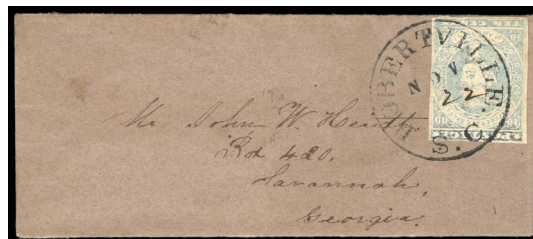 ROBERTVILLE. S.C.
NOV
22
TEN CEN
Mr John W. Heidt
420,
Savannah,
Georgia